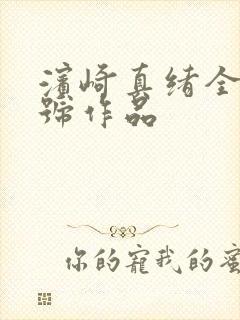 濱崎真绪全
號作品
你的寵我的蜜